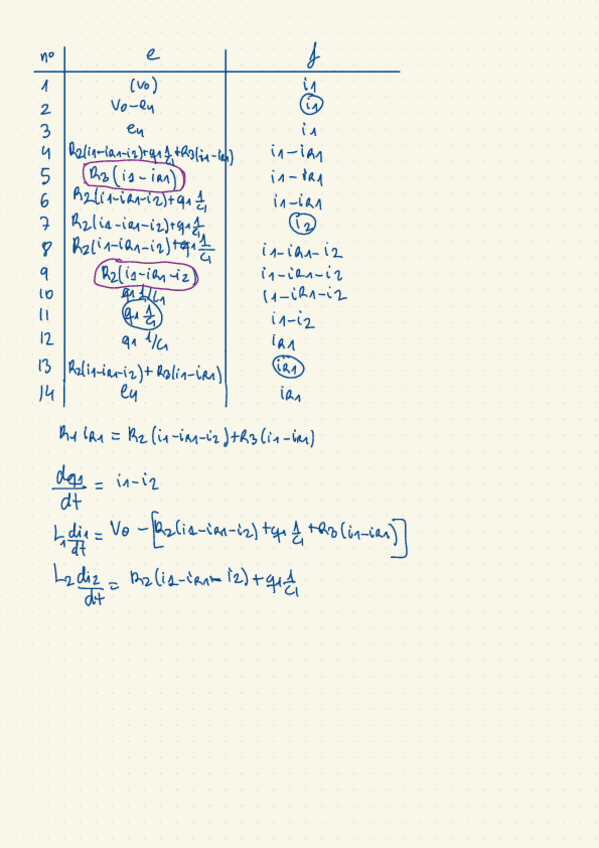 nº e f
1 (V0) i1
2 V0-e4 i1
3 e4 i1
4 R2(i1-iR1-i2)+q1 1/C1+R3(i1-iR1) i1-iR1
5 R3(i1-iR1) i1-iR1
6 R2(i1-iR1-i2)+q1 1/C1 i1-iR1
7 R2(i1-iR1-i2)+q1 1/C1 i2
8 R2(i1-iR1-i2)+q1 1/C1 i1-iR1-i2
9 R2(i1-iR1-i2) i1-iR1-i2
10 q1 1/C1 i1-iR1-i2
11 q1 1/C1 i1-i2
12 q1 1/C1 iR1
13 R2(i1-iR1-i2)+R3(i1-iR1) iR1
14 e4 iR1
R1 iR1 = R2(i1-iR1-i2)+R3(i1-iR1)
dq1/dt = i1-i2
L1 di1/dt = V0-[R2(i1-iR1-i2)+q1 1/C1+R3(i1-iR1)]
L2 di2/dt = R2(i1-iR1-i2)+q1 1/C1